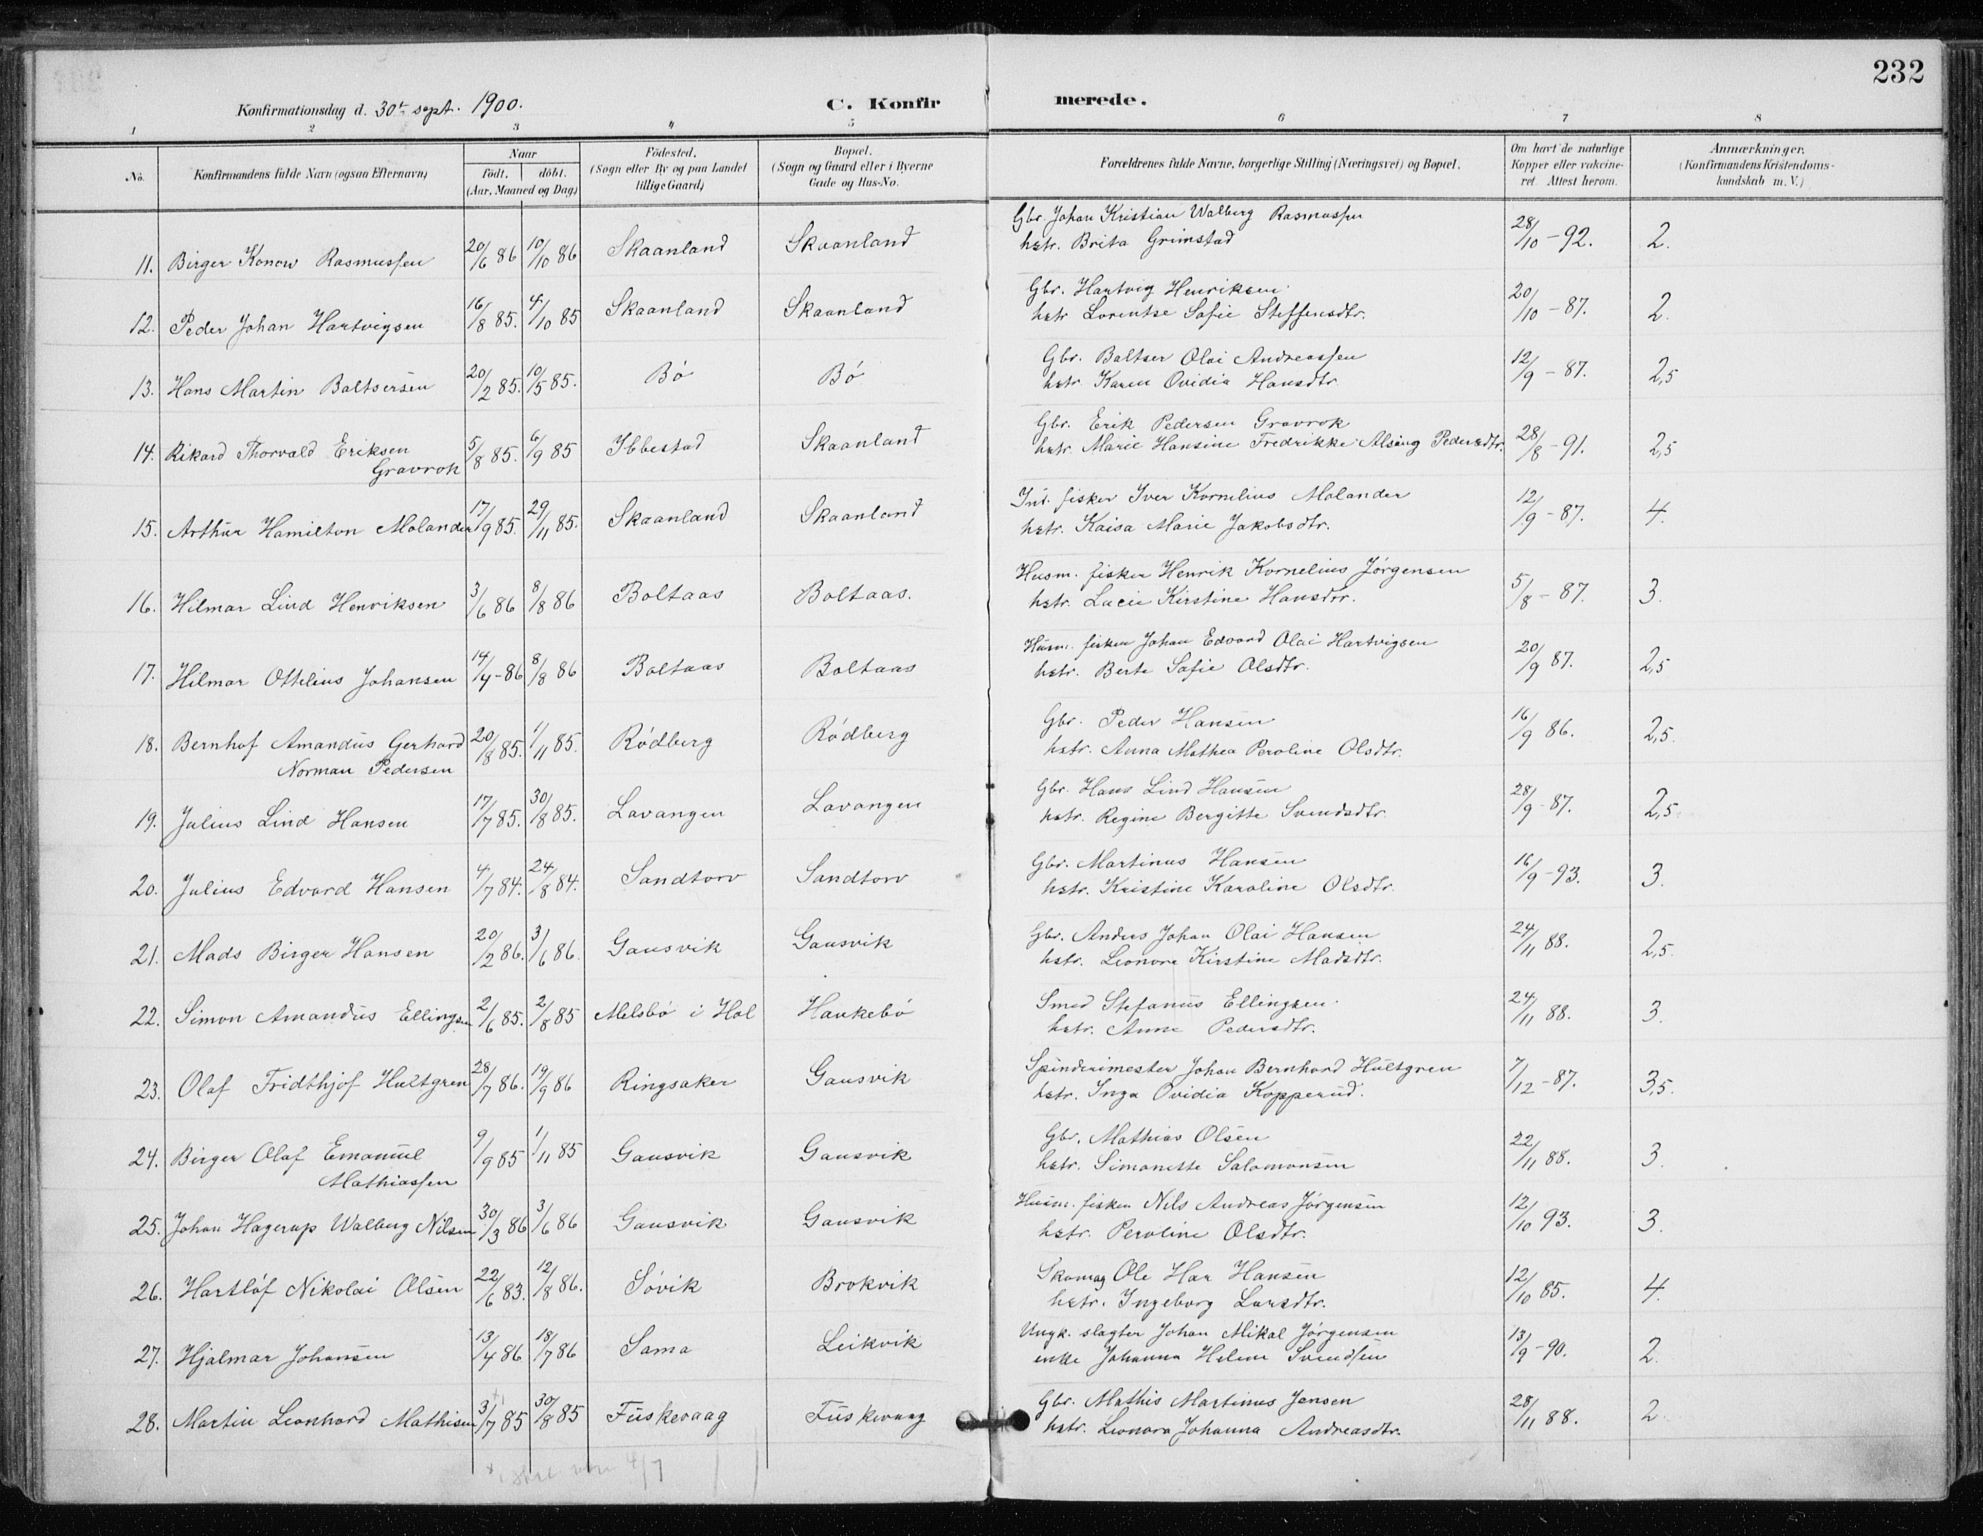 232
Konfirmationsdag d. 30te sept. 1900.
C. Konfirmerede.
1 2 3 4 5 6 7 8
No. Konfirmandens fulde Navn (ogsaa Efternavn) Naar født. døbt. (Aar, Maaned og Dag) Fødested. (Sogn eller By og paa Landet tillige Gaard) Bopæl. (Sogn og Gaard eller i Byerne Gade og Hus-No. Forældrenes fulde Navne, borgerlige Stilling (Næringsvei) og Bopæl. Om havt de naturlige Kopper eller vakcineret. Attest herom. Anmærkninger. (Konfirmandens Kristendomskundskab m. V.)
11. Birger Konow Rasmussen 20/6 86 10/10 86 Skaanland Skaanland Gbr. Johan Kristian Walberg Rasmussen
hstr. Brita Grimstad 28/10 - 92. 2.
12. Peder Johan Hartvigsen 16/8 85. 4/10 85 Skaanland Skaanland Gbr. Hartvig Henriksen
hstr Lorentse Sofie Steffensdtr. 20/10 - 87. 2.
13. Hans Martin Baltsersen 20/2 85. 10/5 85. Bø Bø Gbr. Baltser Olai Andreassen
hstr. Karen Ovidia Hansdtr. 12/9 - 87. 2,5
14. Rikard Thorvald Eriksen
Gravrok 5/8 85. 6/9 85 Ibbestad Skaanland Gbr. Erik Pedersen Gravrok
hstr. Marie Hansine Fredrikke Alsing Pedersdtr. 28/8 - 91. 2,5
15. Arthur Hamilton Molander 17/9 85. 29/11 85. Skaanland Skaanland Ind. fisker Iver Kornelius Molander
hstr. Kaisa Marie Jakobsdtr. 12/9 - 87. 4.
16. Hilmar Lind Henriksen 3/6 86 8/8 86 Boltaas Boltaas. Husm. fisker Henrik Kornelius Jørgensen
hstr. Lucie Kirstine Hansdtr. 5/8 - 87. 3.
17. Hilmar Ottilius Johansen 14/4 - 86 8/8 86 Boltaas Boltaas Husm. fisker Johan Edvard Olai Hartvigsen
hstr. Berte Sofie Olsdtr. 20/9 87. 2,5
18. Bernhof Amandus Gerhard
Norman Pedersen 20/8 85. 1/11 85. Rødberg Rødberg Gbr. Peder Hansen
hstr. Anna Mathea Peroline Olsdtr. 16/9 86. 2,5.
19. Julius Lind Hansen 17/7 85. 30/8 85. Lavangen Lavangen Gbr. Hans Lind Hansen
hstr. Regine Bergitte Svendsdtr. 28/9 - 87. 2,5.
20. Julius Edvard Hansen 4/7 84. 24/8 84. Sandtorv Sandtorv Gbr. Martinus Hansen
hstr. Kristine Karoline Olsdtr. 16/9 - 93. 3.
21. Mads Birger Hansen 20/2 86. 3/6 86. Gausvik Gausvik Gbr. Anders Johan Olai Hansen
hstr. Leonore Kirstine Madsdtr. 24/11 88. 2,5.
22. Simon Amandus Ellingsen 2/6 85. 2/8 85 Melsbø i Hol Haukebø Smed Stefanus Ellingsen.
hstr. Anne Pedersdtr. 24/11 88. 3.
23. Olaf Fridthjof Hultgren 28/7 86. 19/9 86 Ringsaker Gausvik Spinderimester Johan Bernhard Hultgren
hstr. Inga Ovidia Kopperud. 7/12 - 87. 3,5.
24. Birger Olaf Emanuel
Mathiassen 9/9 85 1/11 85 Gausvik Gausvik Gbr. Mathias Olsen
hstr. Simonette Salomonsen 22/11 88. 3.
25. Johan Hagerup Walberg Nilsen 30/3 86 3/6 86 Gausvik Gausvik Husm. fisker Nils Andreas Jørgensen
hstr. Peroline Olsdtr. 12/10 93. 3.
26. Hartløf Nikolai Olsen 22/6 83. 12/8 86. Søvik Brokvik Skomag Ole Har Hansen
hstr. Ingeborg Larsdtr. 12/10 85. 4.
27. Hjalmar Johansen 13/4 86 18/7 86 Sama Leikvik Ungk. slagter Johan Mikal Jørgensen
enke Johanna Helene Svendsen 13/9 - 90. 2.
28. Martin Leonhard Mathisen 3/7 85 30/8 85 Fuskevaag Fuskevaag Gbr. Mathis Martinus Jensen
hstr. Leonora Johanna Andreasdtr. 28/11 88. 2.
4/7